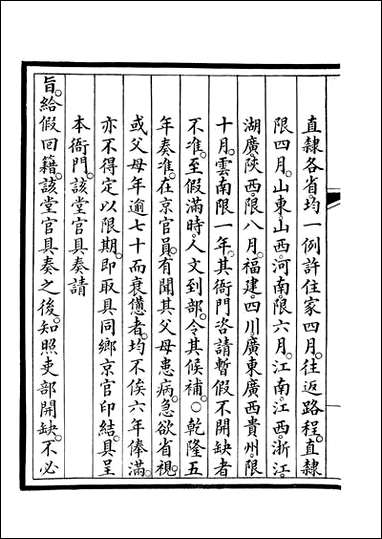 直隸各省均一例許住家四月。往近路程。直隸
限四月。山東山西。河南限六月。江南。江西。浙江。
湖廣陝西。限八月。福建。四川。廣東廣西貴州。限
十月。雲南限一年。其衙門咨請暫假不開缺者
不准。至假滿時。人文到部。令其候補。○乾隆五
年奏准。在京官員。有聞其父母患病。急欲省視。
或父母年逾七十而衰憊者。均不俟六年俸滿。
亦不得定以限期。即取具同鄉京官印結。具呈
本衙門。該堂官具奏請
旨。給假回籍。該堂官具奏之後。知照吏部開缺。不必